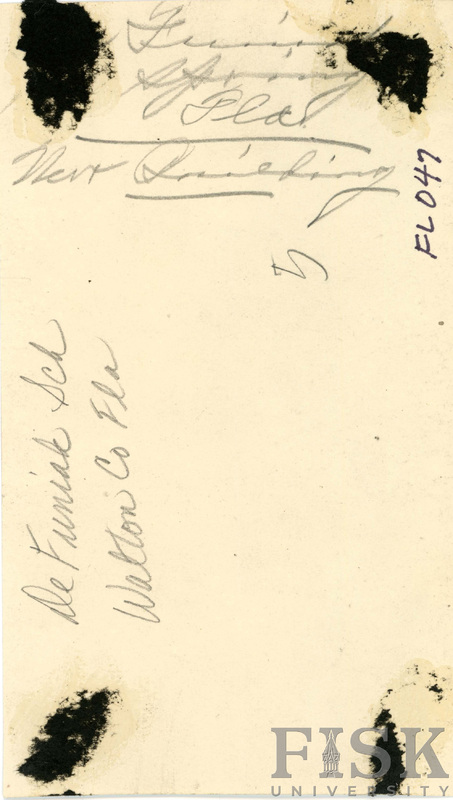 Funiak
Spring
Fla.
New Building
5
FL047
De Funiak Sch
Walton Co Fla
FISK
UNIVERSITY